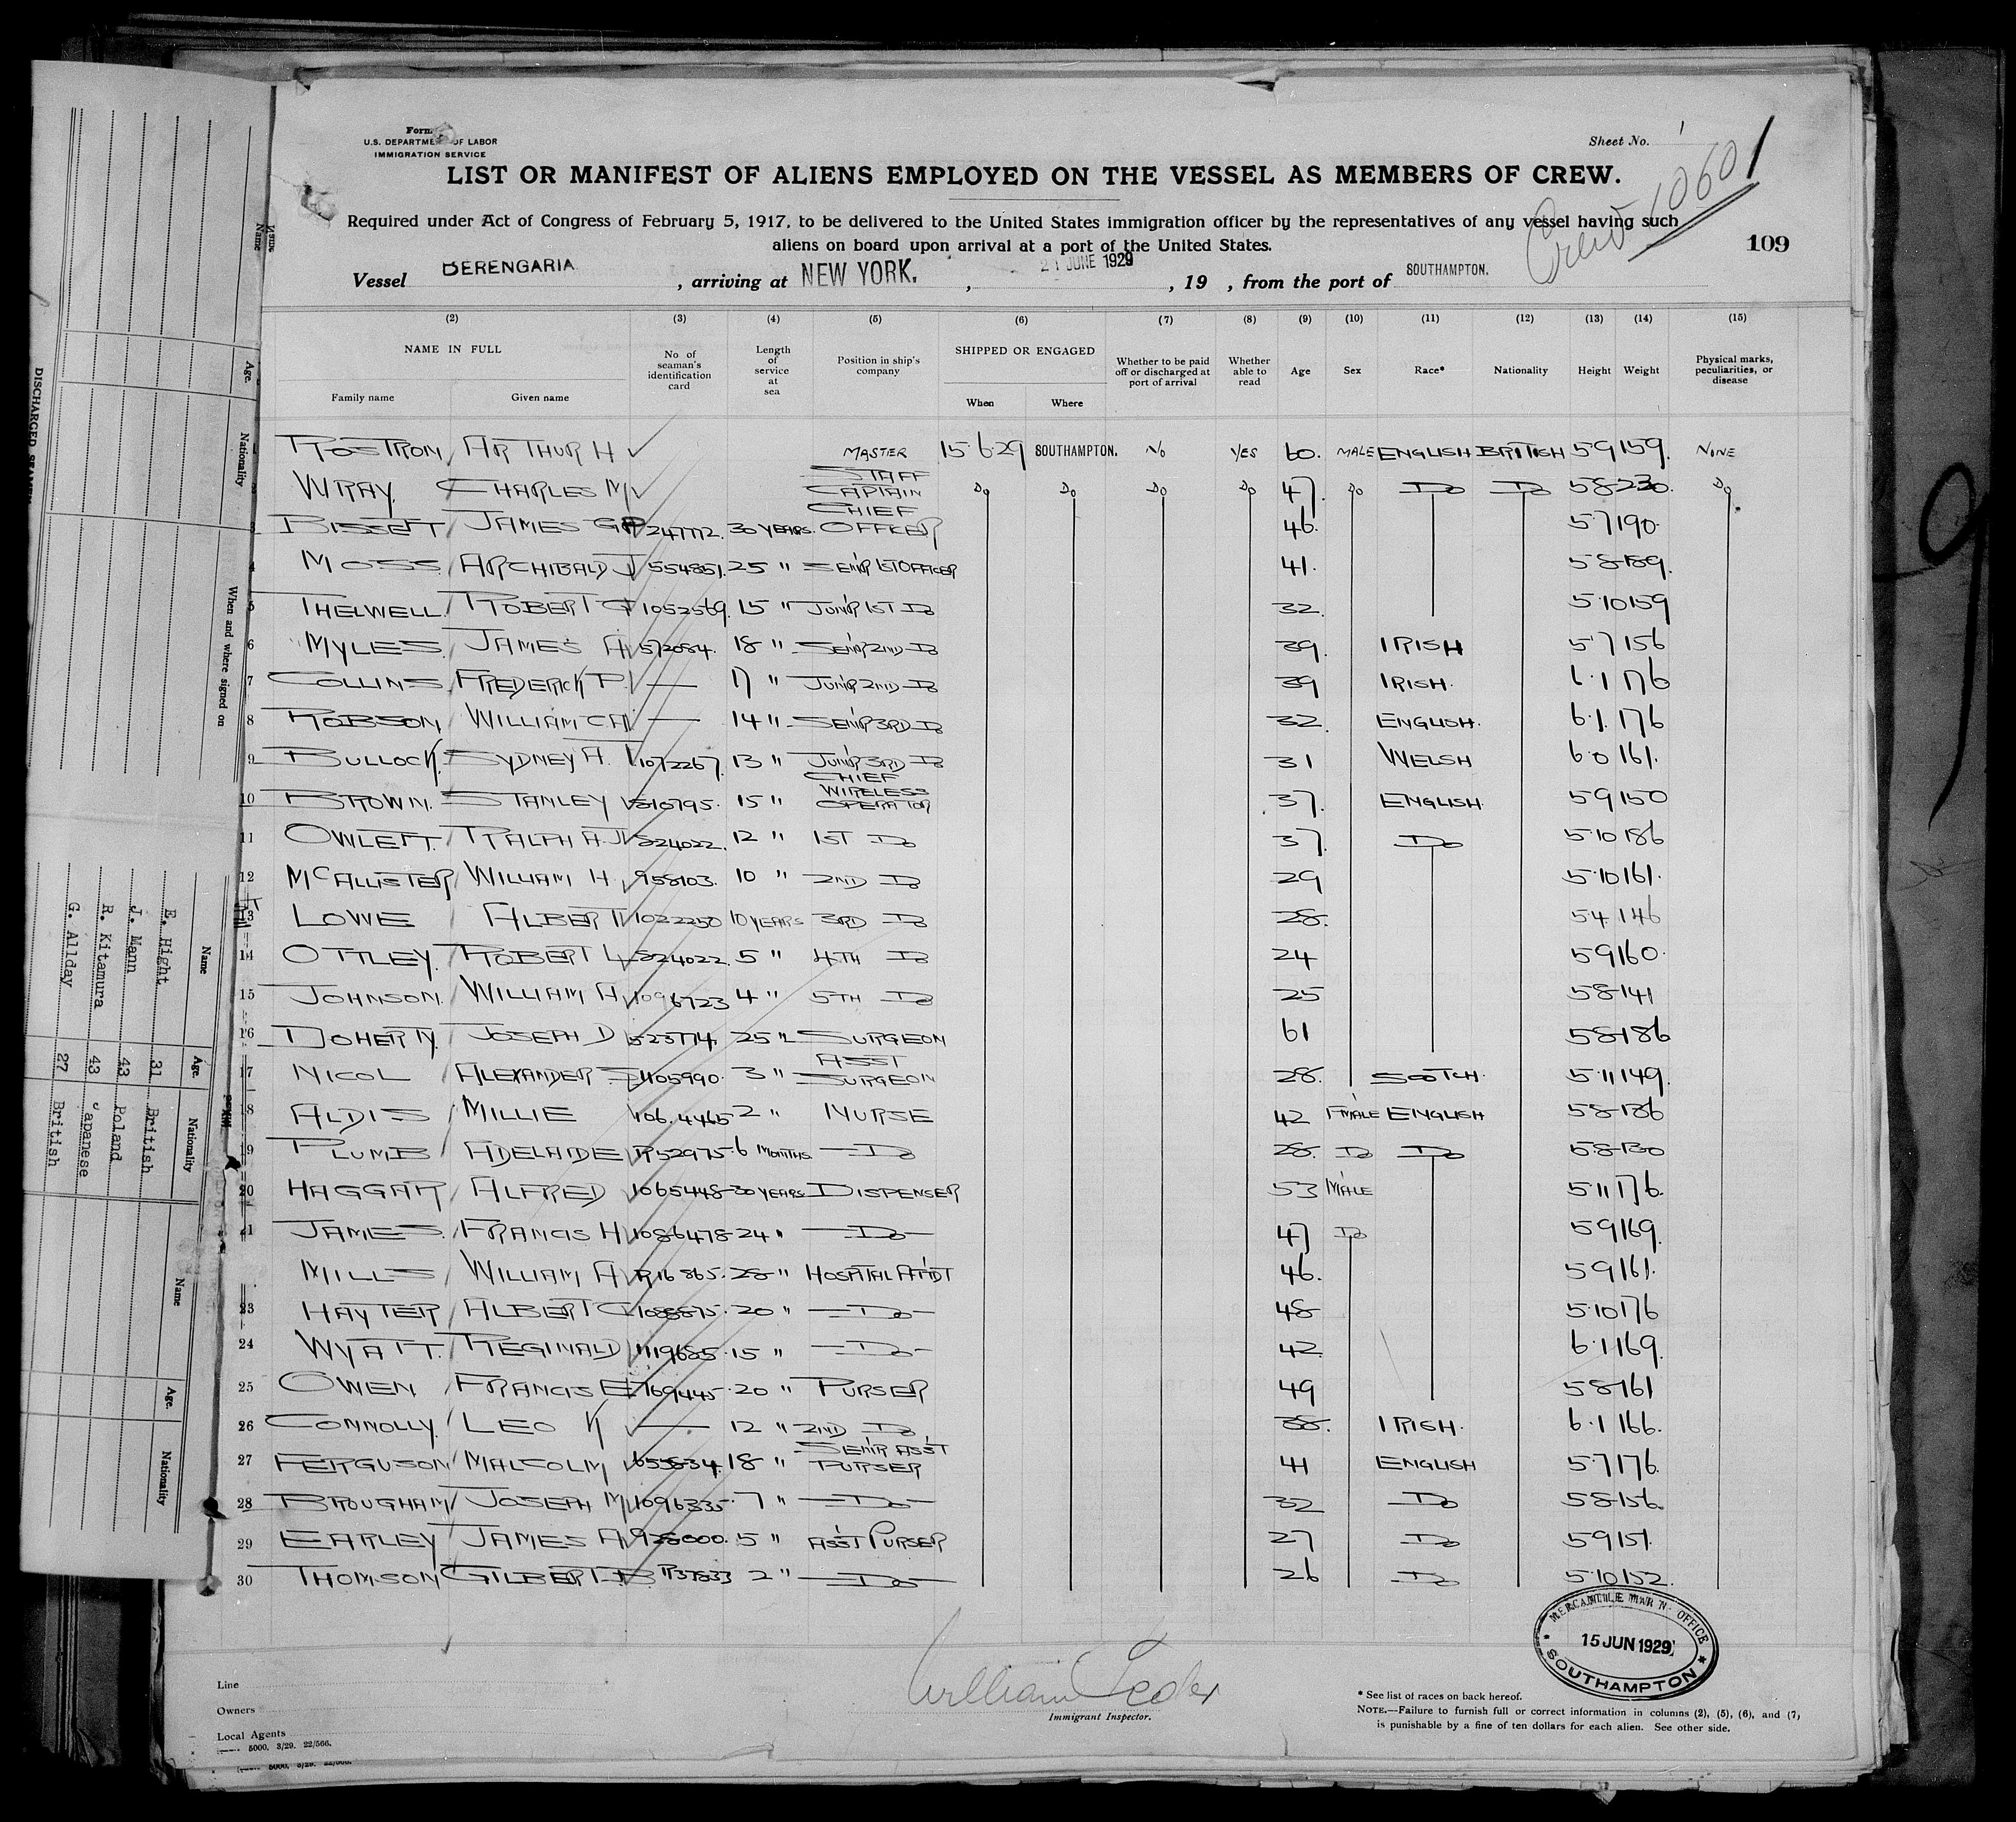 Form
U.S. DEPARTMENT OF LABOR
IMMIGRATION SERVICE
Sheet No. 1
LIST OR MANIFEST OF ALIENS EMPLOYED ON THE VESSEL AS MEMBERS OF CREW.
Required under Act of Congress of February 5, 1917, to be delivered to the United States immigration officer by the representatives of any vessel having such
aliens on board upon arrival at a port of the United States.
Crew 1060
109
Vessel BERENGARIA, arriving at NEW YORK., 21 JUNE 1929, 19 , from the port of SOUTHAMPTON.
(2) (3) (4) (5) (6) (7) (8) (9) (10) (11) (12) (13) (14) (15)
NAME IN FULL Family name Given name No of seaman's identification card Length of service at sea Position in ship's company SHIPPED OR ENGAGED When Where Whether to be paid off or discharged at port of arrival Whether able to read Age Sex Race* Nationality Height Weight Physical marks, peculiarities, or disease
ROSTRON ARTHUR H MASTER 15·6·29 SOUTHAMPTON. NO YES 60. MALE ENGLISH BRITISH 5 9 159. NONE
WRAY. CHARLES M STAFF CAPTAIN DO DO DO DO 47. DO DO DO 5 8 230. DO
3 BISSETT JAMES G P 247772. 30 YEARS. CHIEF OFFICER 46. 5 7 190.
4 MOSS ARCHIBALD J 554851. 25 " SEN'R 1ST OFFICER 41. 5 8 189.
5 THELWELL. ROBERT G 1052569. 15 " JUN'R 1ST DO 32. 5·10 159
6 MYLES. JAMES A 572084. 18 " SEN'R 2ND DO 39. IRISH 5 7 156
7 COLLINS FREDERICK P. — 17 " JUN'R 2ND DO 39 IRISH. 6·1 176
8 ROBSON WILLIAM C A — 14 " SEN'R 3RD DO 32. ENGLISH. 6·1. 176
9 BULLOCK. SYDNEY A. 1072267. 13 " JUN'R 3RD DO 31 WELSH 6·0 161.
10 BROWN. STANLEY 310795. 15 " CHIEF WIRELESS OPERATOR 37. ENGLISH. 5 9 150
11 OWLETT. RALPH A. J 224022. 12 " 1ST DO 37. DO 5·10 186
12 McALLISTER WILLIAM H. 958103. 10 " 2ND DO 29 5·10 161.
13 LOWE ALBERT 1022250 10 YEARS 3RD DO 28. 5 4 146
14 OTTLEY. ROBERT L 224022. 5 " 4TH DO 24 5 9 160.
15 JOHNSON. WILLIAM A 1096723 4 " 5TH DO 25 5 8 141
16 DOHERTY. JOSEPH D 523774. 25 " SURGEON 61 5 8 186
17 NICOL ALEXANDER S 1105990. 3 " ASST SURGEON 28. SCOTCH. 5·11 149.
18 ALDIS MILLIE 106.4465 2 " NURSE 42 F'MALE ENGLISH 5 8 186
19 PLUMB ADELAIDE R52975. 6 MONTHS DO 28. DO DO 5 8 130
20 HAGGAR ALFRED 1065448 30 YEARS DISPENSER 53 MALE 5 11 176.
21 JAMES. FRANCIS H 1086478 24 " DO 47 DO 5 9 169.
MILLS WILLIAM A R16865. 28 " HOSPITAL ATT'DT 46. 5 9 161.
23 HAYTER ALBERT C 1088875. 20 " DO 48 5·10 176
24 WYATT. REGINALD 1119685. 15 " DO 42. 6·1 169.
25 OWEN FRANCIS E 769445. 20 " PURSER 49 5 8 161
26 CONNOLLY. LEO K — 12 " 2ND DO 38. IRISH. 6·1 166.
27 FERGUSON MALCOLM 655834. 18 " SEN'R ASS'T PURSER 41 ENGLISH 5 7 176.
28 BROUGHAM JOSEPH M 1096335. 7 " DO 32 DO 5 8 156.
29 EARLEY JAMES A 928000. 5 " ASS'T PURSER 27 DO 5 9 151.
30 THOMSON GILBERT B R37833 2 " DO 26 DO 5·10 152.
MERCANTILE MARINE OFFICE
15 JUN 1929
SOUTHAMPTON
Line
Owners
Local Agents
5000. 3/29. 22/566.
William
Immigrant Inspector.
* See list of races on back hereof.
NOTE.—Failure to furnish full or correct information in columns (2), (5), (6), and (7)
is punishable by a fine of ten dollars for each alien. See other side.
Name Age. Nationality When and where signed on
DISCHARGED SEAMEN
Name Age. Nationality
E. Hight 31 British
J. Mann 43 Poland
R. Kitamura 43 Japanese
G. Allday 27 British
Name Age. Nationality